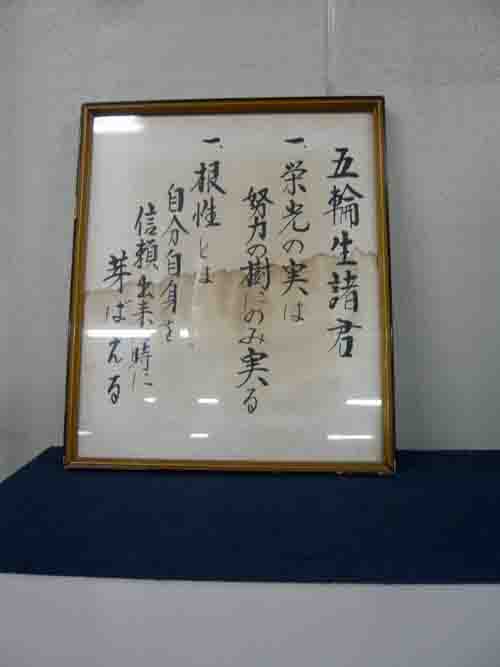 五輪生諸君
一、栄光の実は
努力の樹にのみ実る
一、根性とは
自分自身を
信頼出来る時に
芽ばえる